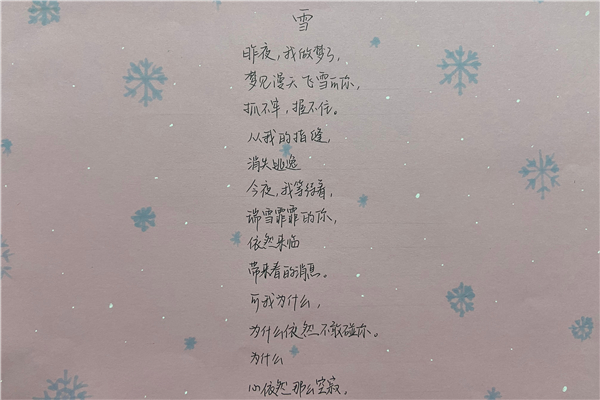 雪
昨夜，我做梦了，
梦见漫天飞雪的你，
抓不牢，握不住。
从我的指缝，
消失逃逸
今夜，我等待着，
瑞雪霏霏的你，
依然来临
带来春的消息。
可我为什么，
为什么依然不敢碰你。
为什么
心依然那么空寂，